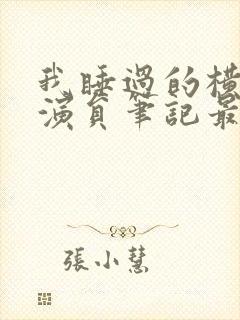 我睡過的橫
演員筆記最
張小慧